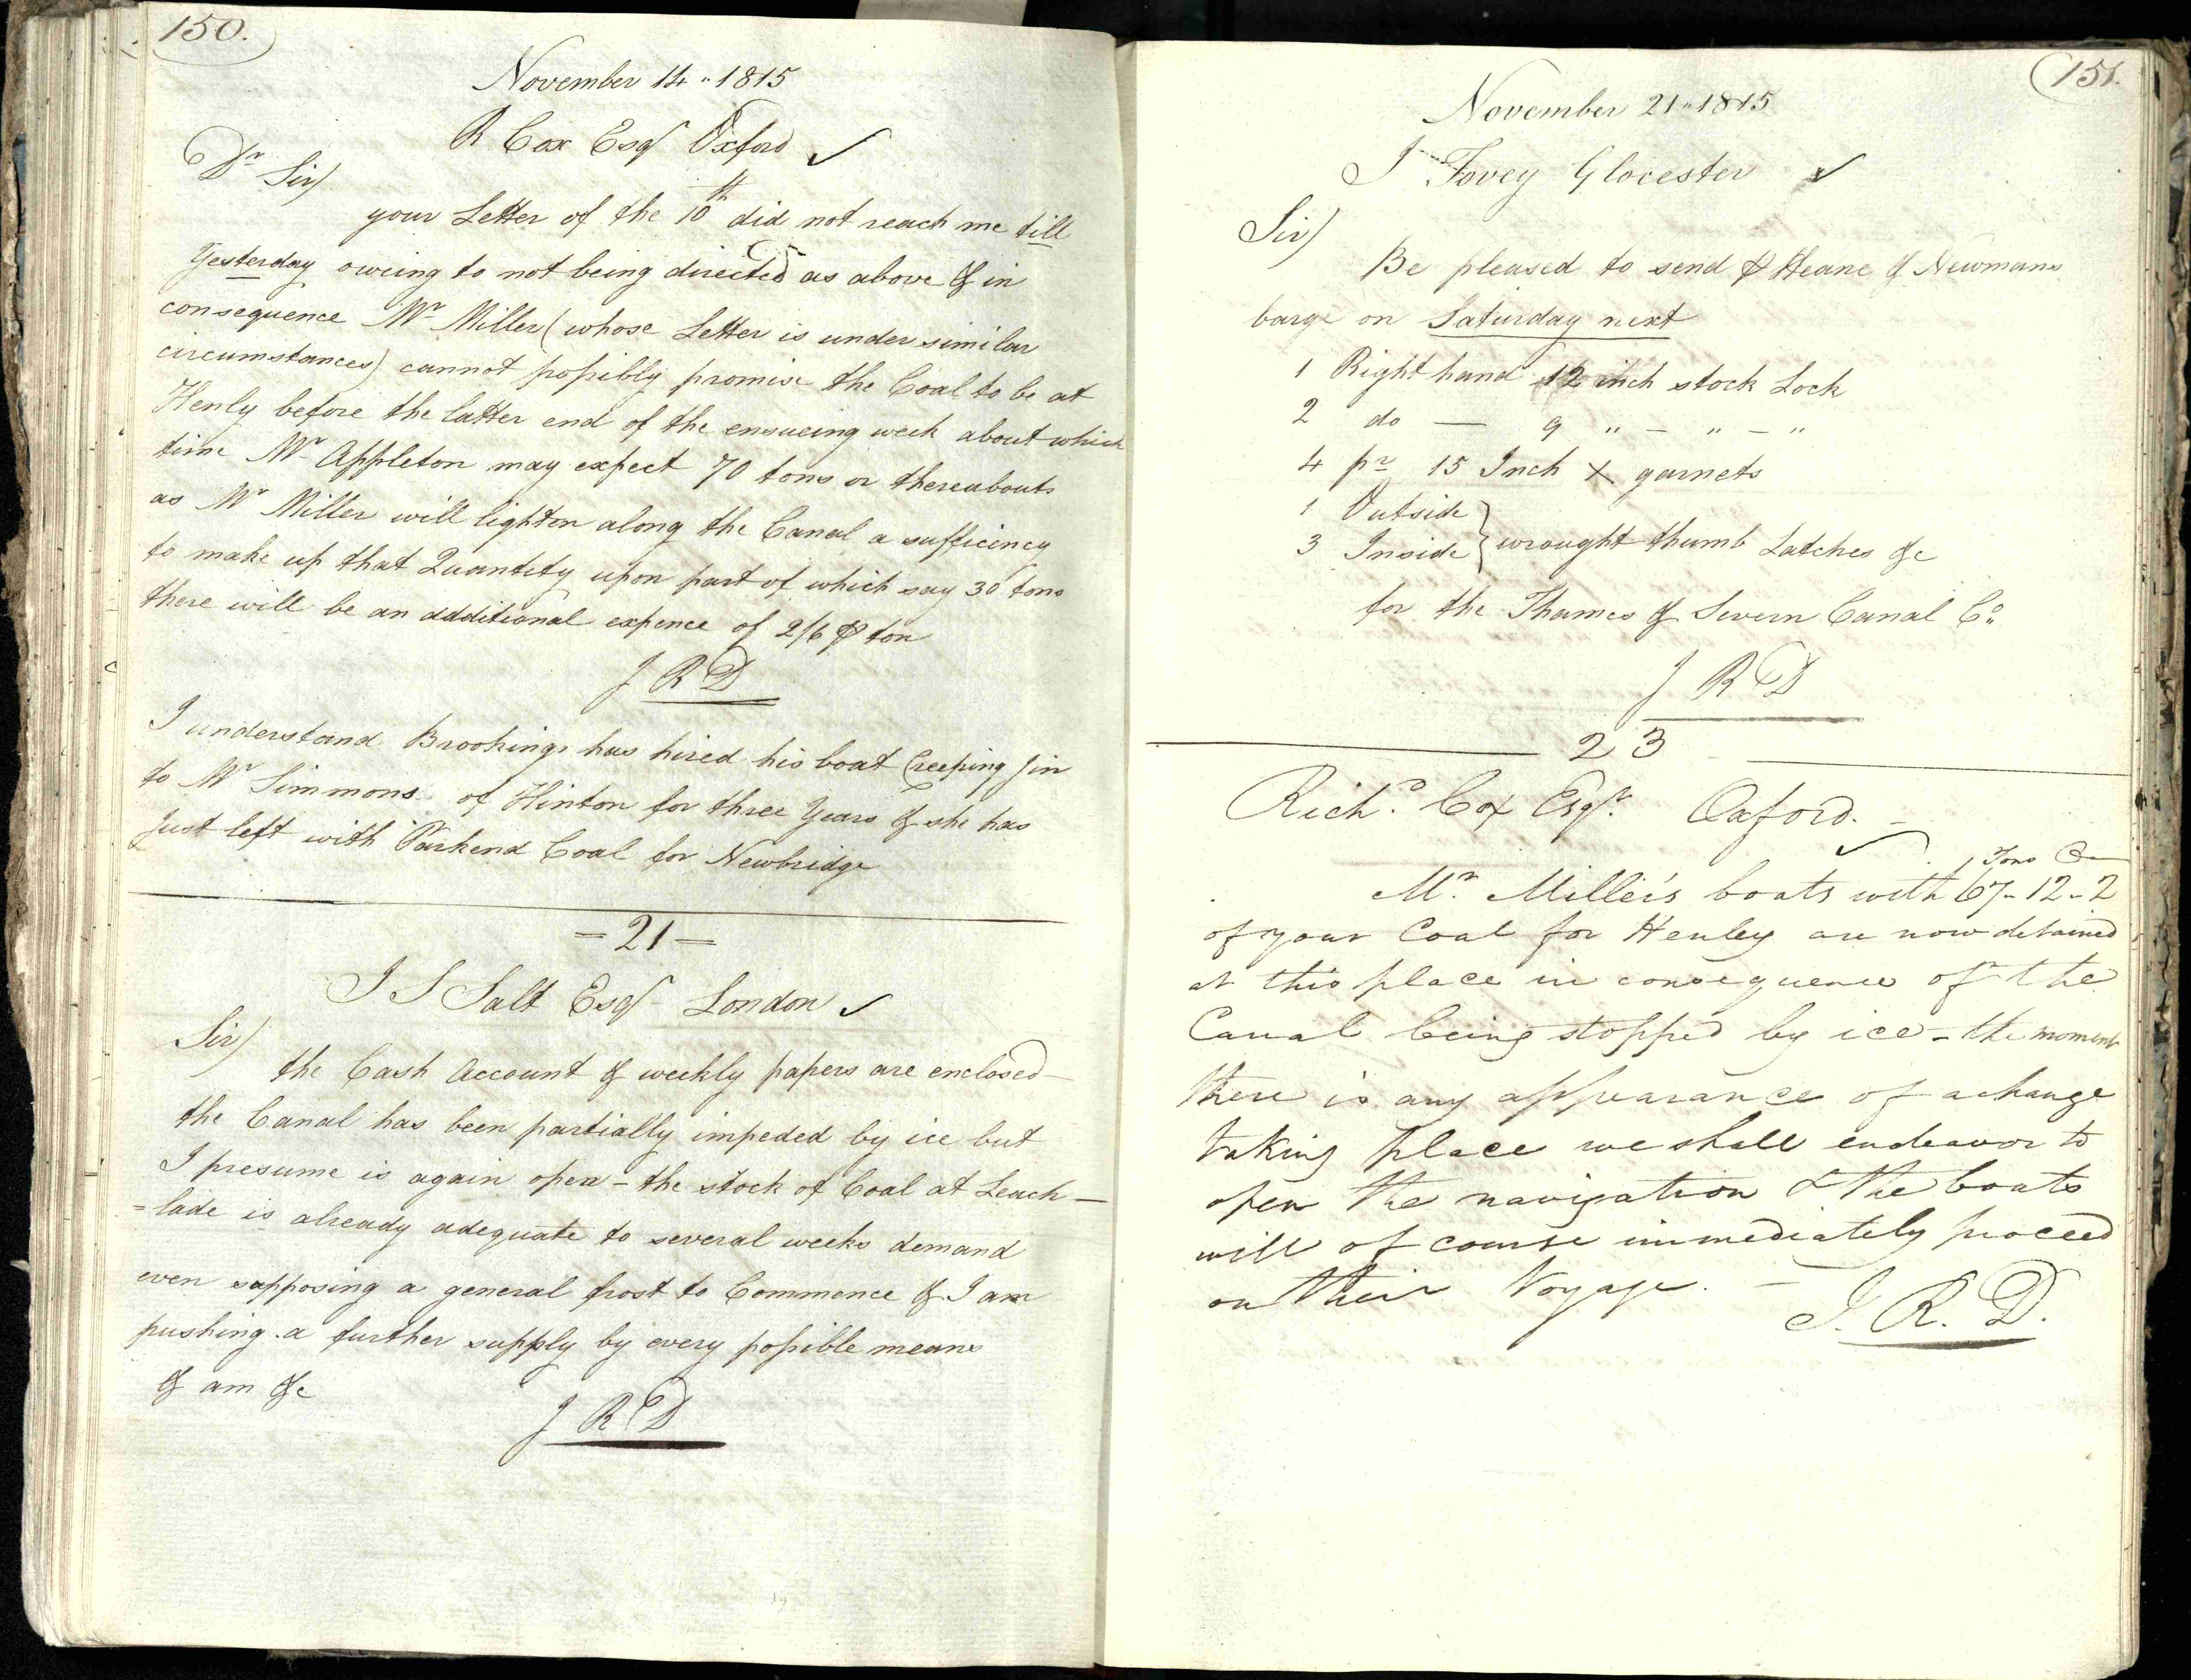 150.
November 14 " 1815
R Cox Esqr Oxford ✓
Dr Sir)
your Letter of the 10th did not reach me till
Yesterday owing to not being directed as above & in
consequence Mr Miller (whose Letter is under similar
circumstances) cannot possibly promise the Coal to be at
Henly before the latter end of the ensueing week about which
time Mr Appleton may expect 70 tons or thereabouts
as Mr Miller will lighton along the Canal a sufficiency
to make up that Quantity upon part of which say 30 tons
there will be an addditional expence of 2/6 ⅌ ton
J R D
I understand Brookings has hired his boat Creeping Jin
to Mr Simmons of Hinton for three Years & she has
just left with Parkend Coal for Newbridge
= 21 =
J S Salt Esqr London ✓
Sir)
the Cash Account & weekly papers are enclosed
the Canal has been partially impeded by ice but
I presume is again open - the stock of Coal at Leach-
=lade is already adequate to several weeks demand
even supposing a general frost to Commence & I am
pushing a further supply by every possible means
& am &c
J R D
151.
November 21 " 1815
J Tovey Glocester ✓
Sir)
Be pleased to send ⅌ Heane & Newmans
barge on Saturday next
1 Right hand 12 inch stock Lock
2 do — 9 " - " - "
4 pr 15 Inch X garnets
1 Outside }
3 Inside } wrought thumb Latches &c
for the Thames & Severn Canal Co.
J R D
23
Richd. Cox Esqr. Oxford. ✓
Tons
Mr. Miller's boats with 67-12-2
of your Coal for Henley are now detained
at this place in consequence of the
Canal being stopped by ice - the moment
there is any appearance of a change
taking place we shall endeavor to
open the navigation & the boats
will of course immediately proceed
on their Voyage. —
J. R. D.